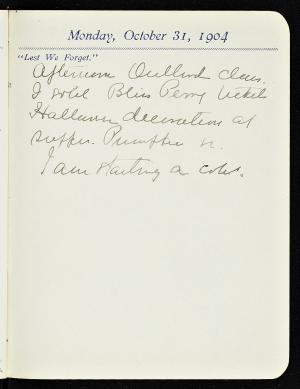 Monday, October 31, 1904
"Lest We Forget."
Afternoon class.
I sold Bliss Perry tickets
Hallowe'en decorations at
supper. Pumpkin
I am starting a cold.